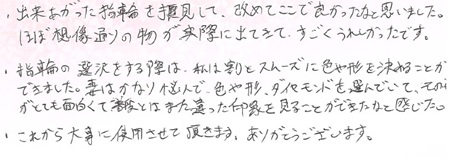 ・出来あがった指輪を拝見して、改めてここで良かったなと思いました。
ほぼ想像通りの物が実際に出てきて、すごくうれしかったです。
・指輪の選択をする際は、私は割とスムーズに色や形を決めることが
できました。妻はかなり悩んで、色や形、ダイヤモンドを選んでいて、それが
とても面白くて普段とはまた違った印象を見ることができたなと感じた。
・これから大事に使用させて頂きます。ありがとうございます。